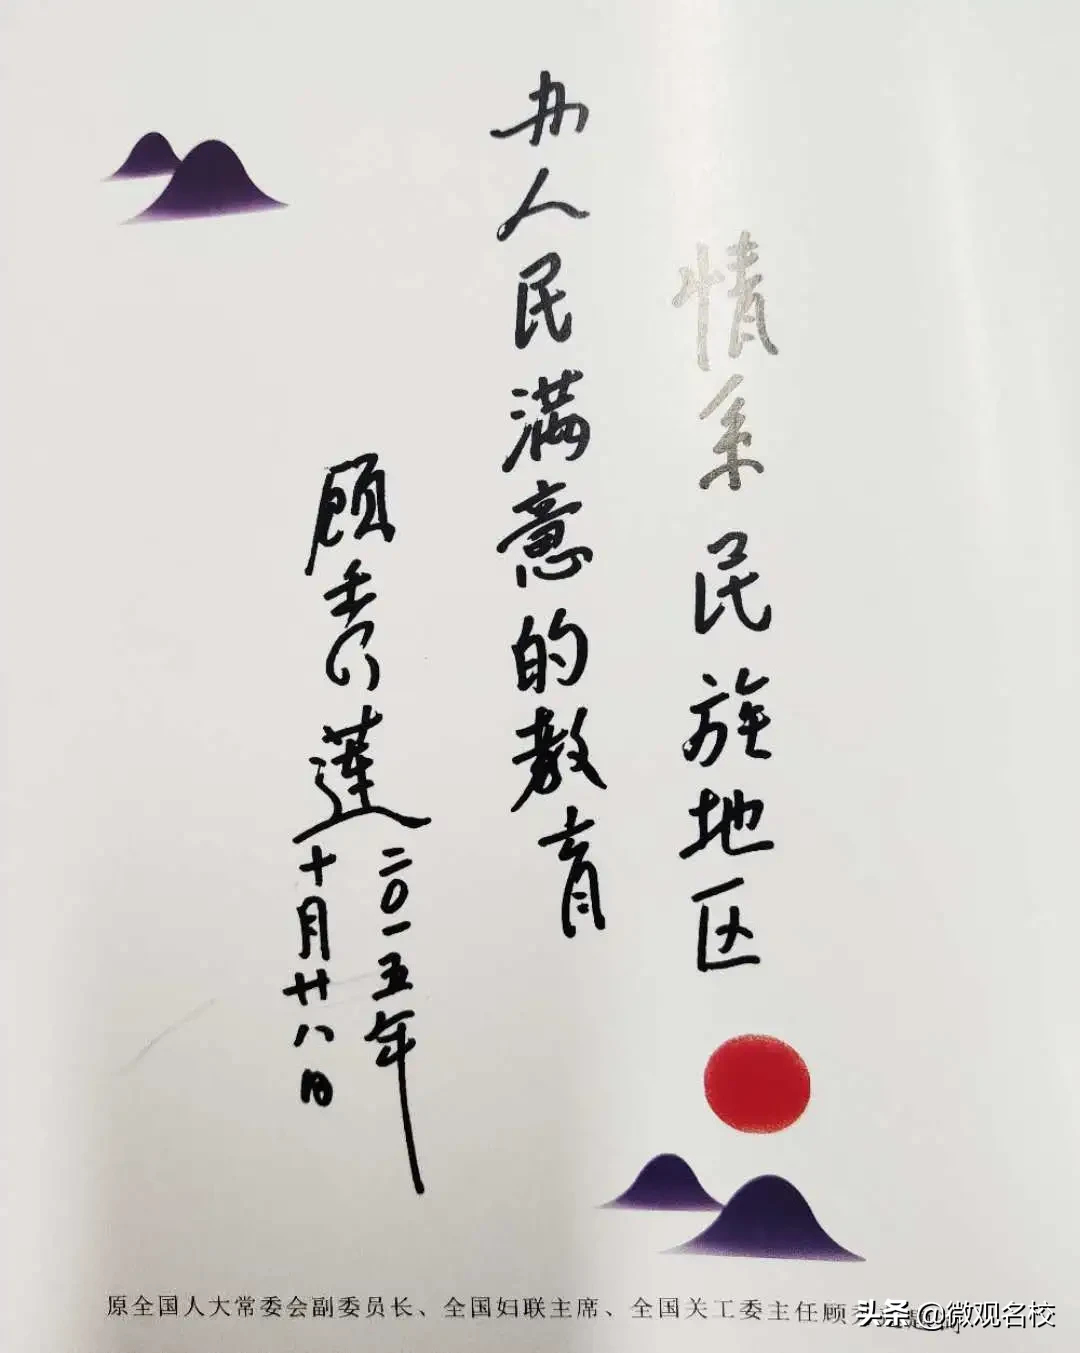 情系民族地区
办人民满意的教育
顾秀莲
二〇一五年
十月廿八日
原全国人大常委会副委员长、全国妇联主席、全国关工委主任顾秀
头条 @微观名校